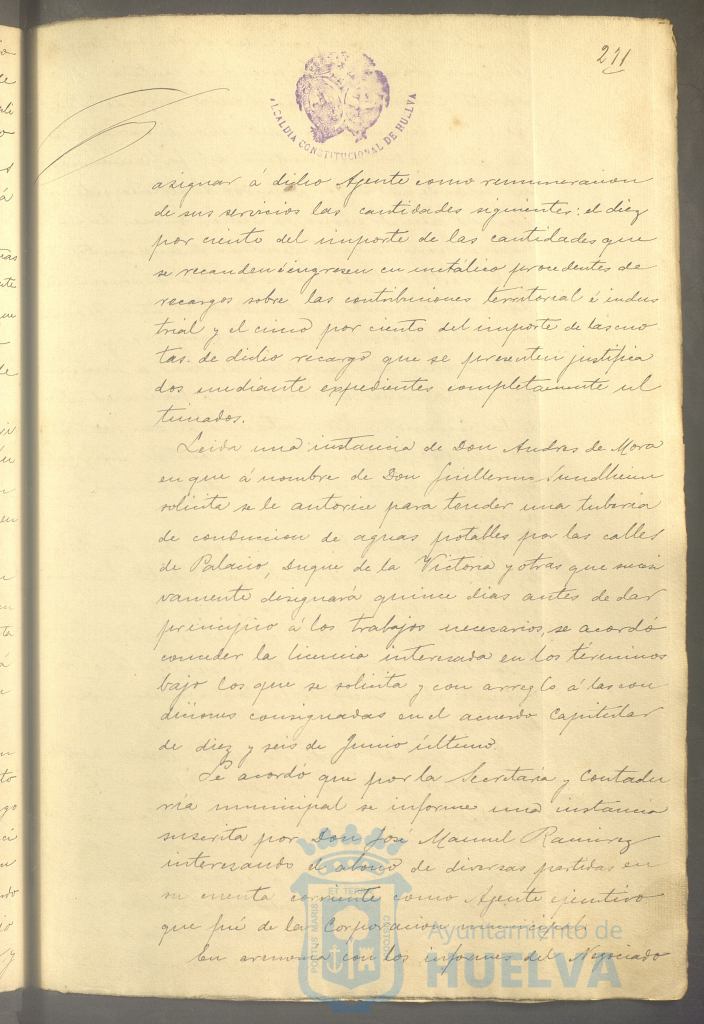 271
ALCALDIA CONSTITUCIONAL DE HUELVA
asignar á dicho Agente como remuneracion
de sus servicios las cantidades siguientes: el diez
por ciento del importe de las cantidades que
se recauden é ingresen en metálico procedentes de
recargos sobre las contribuciones territorial é indus
trial y el cinco por ciento del importe de las cuo
tas de dicho recargo que se presenten justifica
dos mediante expedientes completamente ul
timados.
Leida una instancia de Don Andres de Mora
en que á nombre de Don Guillermo Sundheim
solicita se le autorice para tender una tuberia
de conduccion de aguas potables por las calles
de Palacio, Duque de la Victoria y otras que sucesi
vamente designará quince dias antes de dar
principio á los trabajos necesarios, se acordó
conceder la licencia interesada en los términos
bajo los que se solicita y con arreglo á las con
diciones consignadas en el acuerdo Capitular
de diez y seis de Junio último.
Se acordó que por la Secretaría y Contadu
ría municipal se informe una instancia
suscrita por Don José Manuel Ramirez
interesando el abono de diversas partidas en
su cuenta corriente como Agente ejecutivo
que fué de la Corporacion municipal.
En armonia con los informes del Negociado
PORTUS MARIS ET TERRAE CUSTODIA
Ayuntamiento de
HUELVA